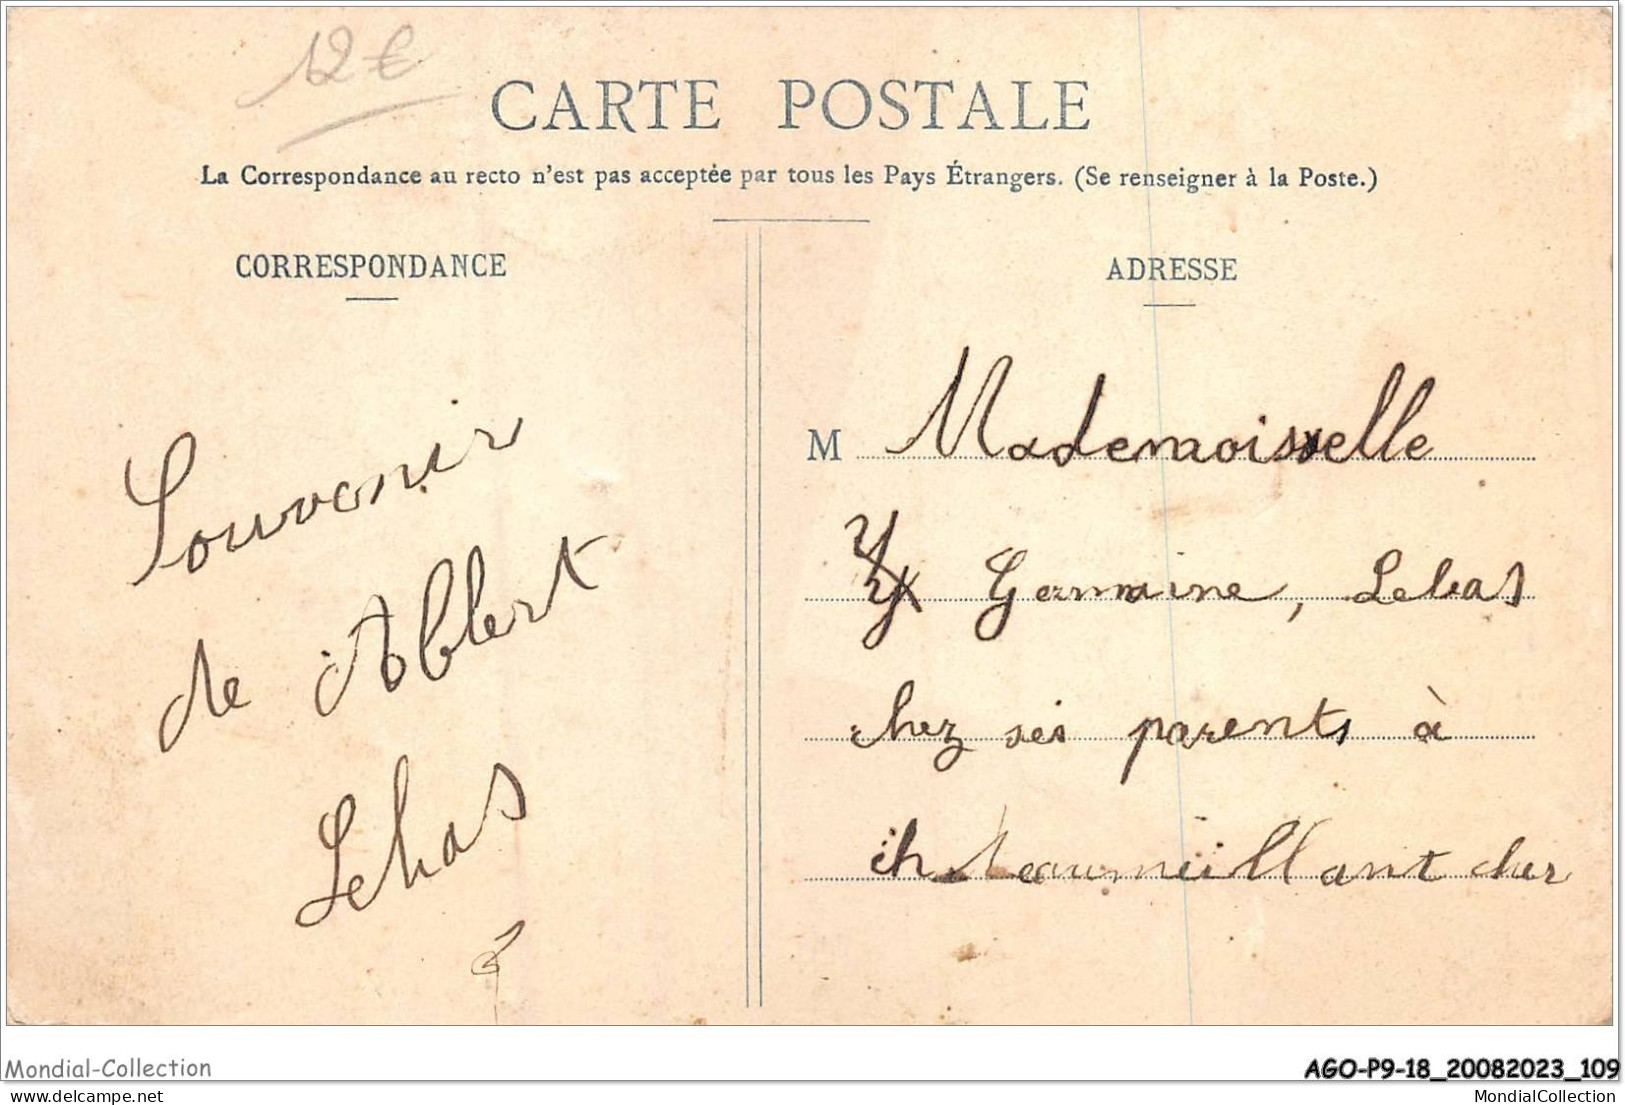 12€
CARTE POSTALE
La Correspondance au recto n'est pas acceptée par tous les Pays Étrangers. (Se renseigner à la Poste.)
CORRESPONDANCE
ADRESSE
Souvenir
de Albert
Lebas
M Mademoiselle
Germaine, Lebas
chez ses parents à
chateaumeillant cher
Mondial-Collection
AGO-P9-18_20082023_109
www.delcampe.net
MondialCollection